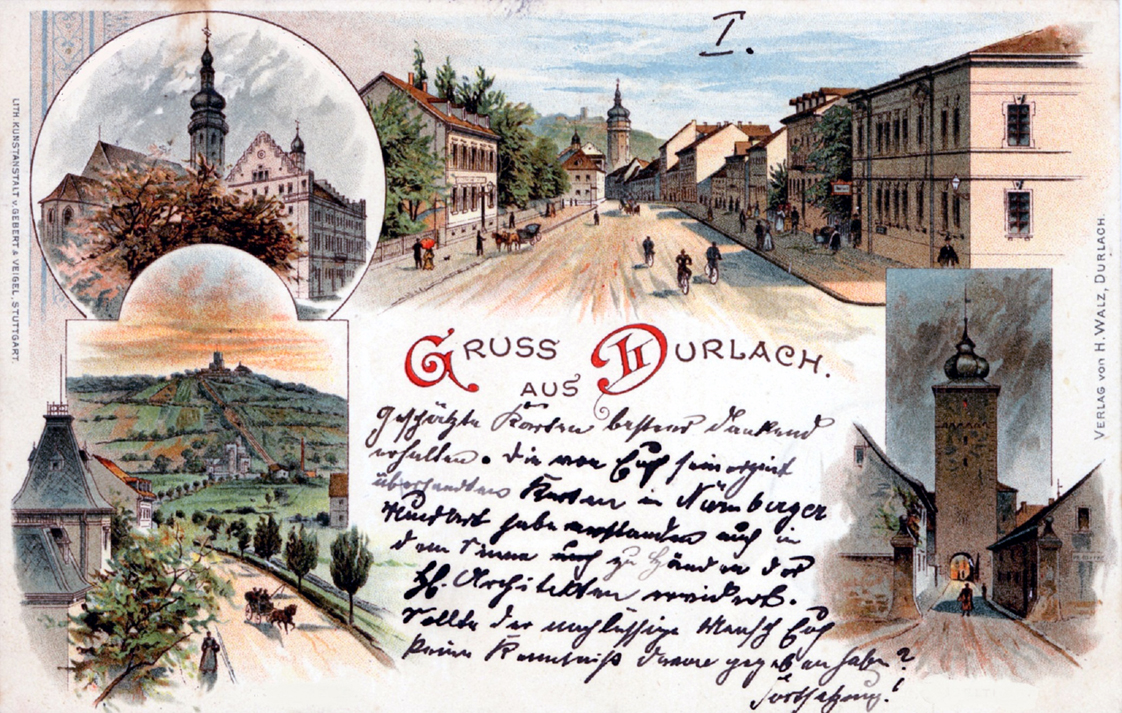 I.
LITH. KUNSTANSTALT V. GEBERT & VEIGEL, STUTTGART.
VERLAG von H. WALZ, DURLACH.
GRUSS
AUS DURLACH.
II
Geschätzte Karten bestens dankend
erhalten. Die von Euch seinerzeit
übersandten Karten in Nürnberger
Mundart habe verstanden auch in
dem Sinne auch zu Händen der
HH. Architekten erwidert.
Sollte der nachlässige Mensch Euch
keine Kenntniß davon gegeben haben?
Fortsetzung!